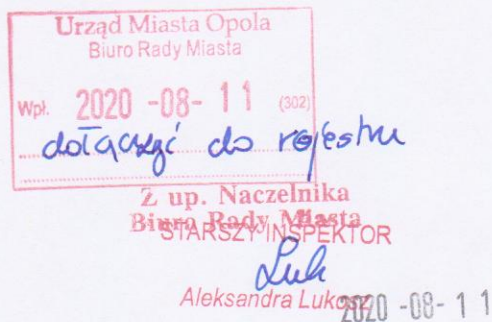 Urząd Miasta Opola
Biuro Rady Miasta
Wpł. 2020 -08- 11 (302)
dołączyć do rejestru
Z up. Naczelnika
Biura Rady Miasta
STARSZY INSPEKTOR
Aleksandra Lukosz
2020 -08- 11